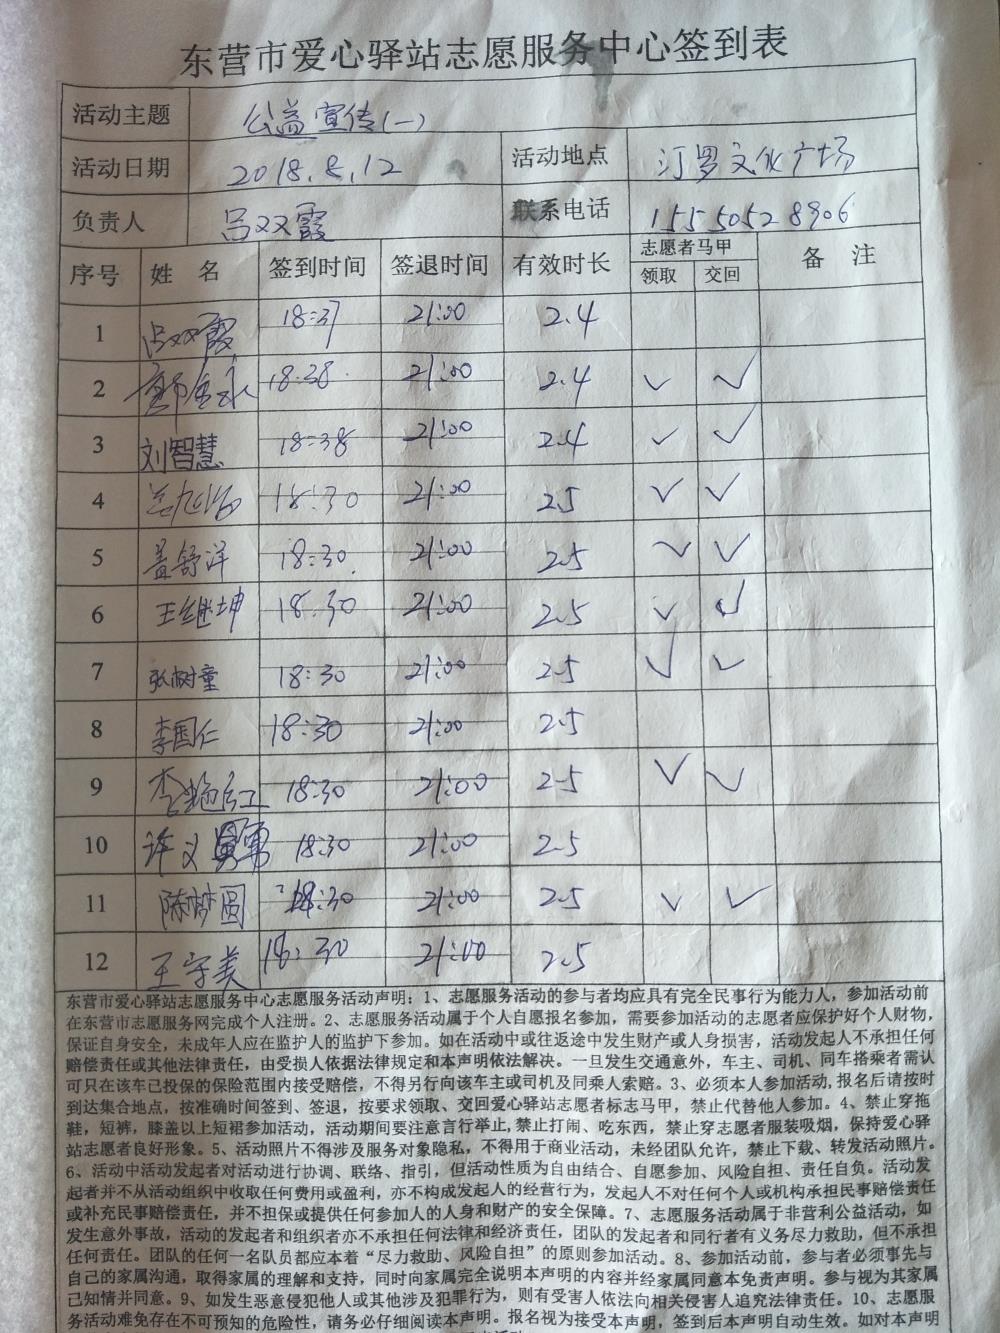 东营市爱心驿站志愿服务中心签到表
活动主题 公益宣传(一)
活动日期 2018.8.12 活动地点 汀罗文化广场
负责人 吕双霞 联系电话 15550528906
序号 姓名 签到时间 签退时间 有效时长 志愿者马甲 备注
领取 交回
1 吕双霞 18:37 21:00 2.4
2 18:38 21:00 2.4 ✓ ✓
3 刘智慧 18:38 21:00 2.4 ✓ ✓
4 18:30 21:00 2.5 ✓ ✓
5 盖舒洋 18:30 21:00 2.5 ✓ ✓
6 王继坤 18:30 21:00 2.5 ✓ ✓
7 张树童 18:30 21:00 2.5 ✓ ✓
8 李国仁 18:30 21:00 2.5
9 李艳红 18:30 21:00 2.5 ✓ ✓
10 许义勇 18:30 21:00 2.5
11 陈梦圆 18:30 21:00 2.5 ✓ ✓
12 王宇美 18:30 21:00 2.5
东营市爱心驿站志愿服务中心志愿服务活动声明：1、志愿服务活动的参与者均应具有完全民事行为能力人，参加活动前
在东营市志愿服务网完成个人注册。2、志愿服务活动属于个人自愿报名参加，需要参加活动的志愿者应保护好个人财物，
保证自身安全，未成年人应在监护人的监护下参加。如在活动中或往返途中发生财产或人身损害，活动发起人不承担任何
赔偿责任或其他法律责任，由受损人依据法律规定和本声明依法解决。一旦发生交通意外，车主、司机、同车搭乘者需认
可只在该车已投保的保险范围内接受赔偿，不得另行向该车主或司机及同乘人索赔。3、必须本人参加活动,报名后请按时
到达集合地点，按准确时间签到、签退，按要求领取、交回爱心驿站志愿者标志马甲，禁止代替他人参加。4、禁止穿拖
鞋，短裤，膝盖以上短裙参加活动，活动期间要注意言行举止,禁止打闹、吃东西，禁止穿志愿者服装吸烟，保持爱心驿
站志愿者良好形象。5、活动照片不得涉及服务对象隐私，不得用于商业活动，未经团队允许，禁止下载、转发活动照片。
6、活动中活动发起者对活动进行协调、联络、指引，但活动性质为自由结合、自愿参加、风险自担、责任自负。活动发
起者并不从活动组织中收取任何费用或盈利，亦不构成发起人的经营行为，发起人不对任何个人或机构承担民事赔偿责任
或补充民事赔偿责任，并不担保或提供任何参加人的人身和财产的安全保障。7、志愿服务活动属于非营利公益活动，如
发生意外事故，活动的发起者和组织者亦不承担任何法律和经济责任，团队的发起者和同行者有义务尽力救助，但不承担
任何责任。团队的任何一名队员都应本着“尽力救助、风险自担”的原则参加活动。8、参加活动前，参与者必须事先与
自己的家属沟通，取得家属的理解和支持，同时向家属完全说明本声明的内容并经家属同意本免责声明。参与视为其家属
已知情并同意。9、如发生恶意侵犯他人或其他涉及犯罪行为，则有受害人依法向相关侵害人追究法律责任。10、志愿服
务活动难免存在不可预知的危险性，请务必仔细阅读本声明。报名视为接受本声明，签到后本声明自动生效。如对本声明